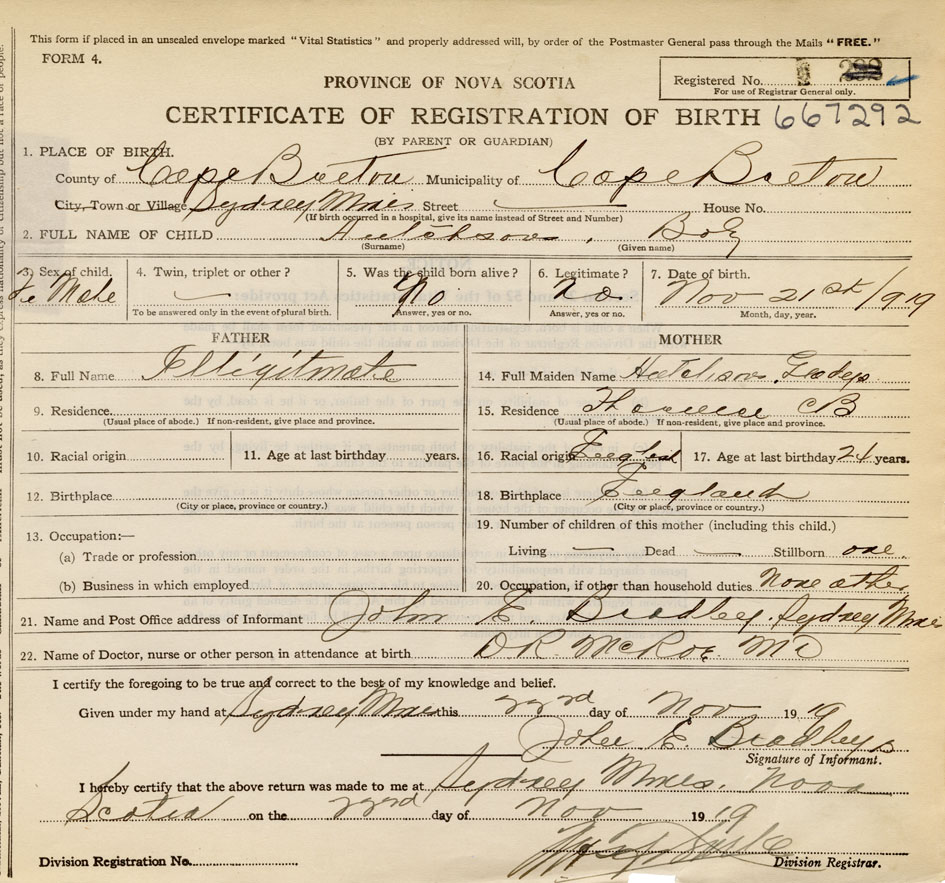 This form if placed in an unsealed envelope marked "Vital Statistics" and properly addressed will, by order of the Postmaster General pass through the Mails "FREE."
FORM 4.
PROVINCE OF NOVA SCOTIA
Registered No.
For use of Registrar General only.
CERTIFICATE OF REGISTRATION OF BIRTH 667292
(BY PARENT OR GUARDIAN)
1. PLACE OF BIRTH.
County of Cape Breton Municipality of Cape Breton
City, Town or Village Sydney Mines Street House No.
(If birth occurred in a hospital, give its name instead of Street and Number)
2. FULL NAME OF CHILD Hutchson,
(Surname) (Given name)
3. Sex of child. 4. Twin, triplet or other? 5. Was the child born alive? 6. Legitimate? 7. Date of birth.
Fe Male — No No. Nov 21st 1919
To be answered only in the event of plural birth. Answer, yes or no. Answer, yes or no. Month, day, year.
FATHER
8. Full Name Illigitmate
9. Residence.
(Usual place of abode.) If non-resident, give place and province.
10. Racial origin 11. Age at last birthday years.
12. Birthplace
(City or place, province or country.)
13. Occupation:—
(a) Trade or profession
(b) Business in which employed
MOTHER
14. Full Maiden Name Hutchson, Gladys
15. Residence CB
(Usual place of abode.) If non-resident, give place and province.
16. Racial origin English 17. Age at last birthday 24 years.
18. Birthplace England
(City or place, province or country.)
19. Number of children of this mother (including this child.)
Living — Dead — Stillborn one.
20. Occupation, if other than household duties None other
21. Name and Post Office address of Informant John E. Bradley. Sydney Mines
22. Name of Doctor, nurse or other person in attendance at birth DR McRoe MD
I certify the foregoing to be true and correct to the best of my knowledge and belief.
Given under my hand at Sydney Mines this 22rd day of Nov 1919
John E. Bradley
Signature of Informant.
I hereby certify that the above return was made to me at Sydney Mines, Nova
Scotia on the day of Nov 1919
Division Registration No.
Division Registrar.